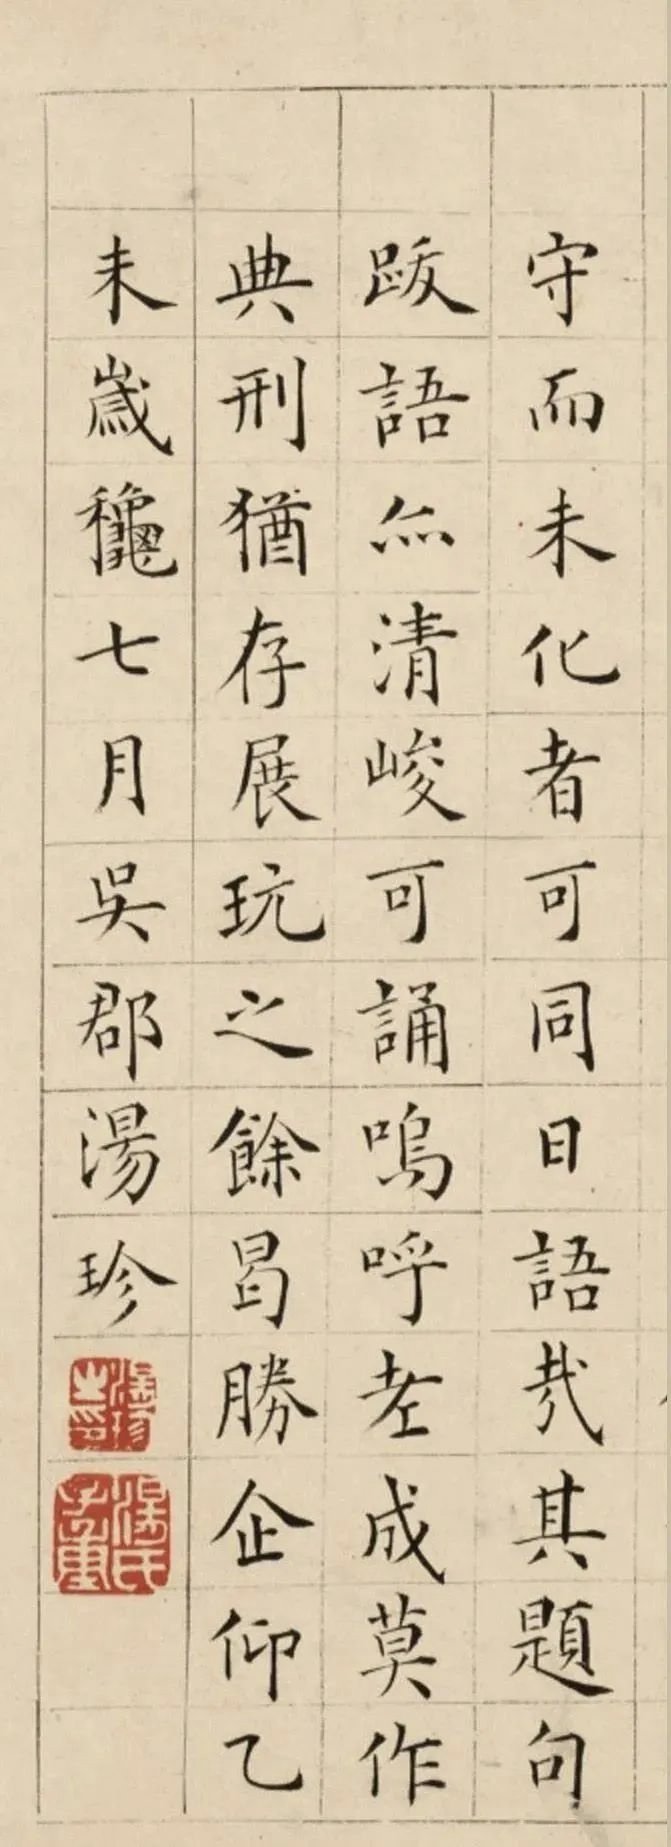 守而未化者可同日語哉其題句
跋語亦清峻可誦嗚呼老成莫作
典刑猶存展玩之餘曷勝企仰乙
未嵗龝七月吳郡湯珍
湯珍之印
湯氏子重